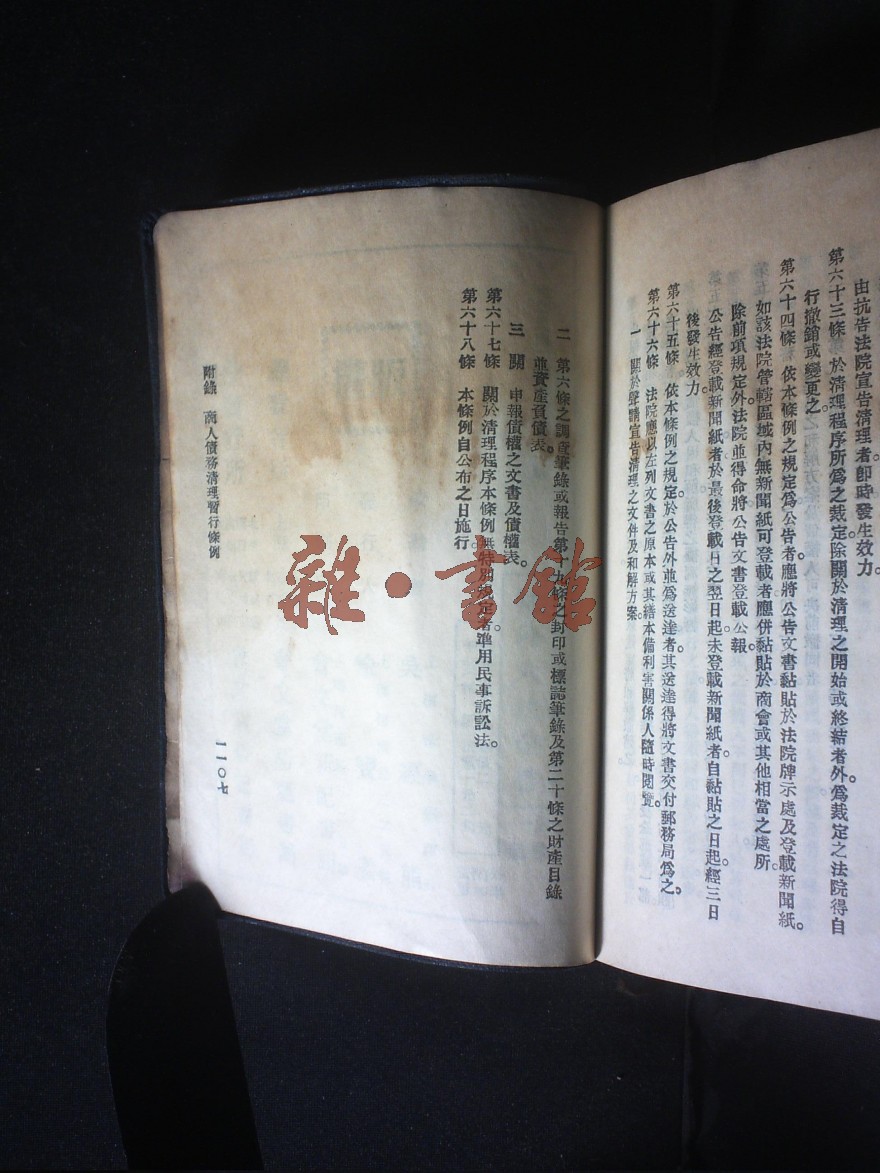 由抗告法院宣告清理者。卽時發生效力。
第六十三條 於清理程序所爲之裁定。除關於清理之開始或終結者外。爲裁定之法院得自
行撤銷或變更之。
第六十四條 依本條例之規定爲公告者。應將公告文書黏貼於法院牌示處及登載新聞紙。
如該法院管轄區域內無新聞紙可登載者。應併黏貼於商會或其他相當之處所。
除前項規定外。法院並得命將公告文書登載公報。
公告經登載新聞紙者。於最後登載日之翌日起。未登載新聞紙者。自黏貼之日起。經三日
後發生效力。
第六十五條 依本條例之規定。於公告外並爲送達者。其送達得將文書交付郵務局爲之。
第六十六條 法院應以左列文書之原本或其繕本備利害關係人隨時閱覽。
一 關於聲請宣告清理之文件及和解方案。
二 第六條之調查筆錄或報告第十九條之封印或標誌筆錄及第二十條之財產目錄
並資產負債表。
三 關 申報債權之文書及債權表。
第六十七條 關於清理程序本條例無特別規定者準用民事訴訟法。
第六十八條 本條例自公布之日施行。
附錄 商人債務清理暫行條例
一一〇七
雜·書館